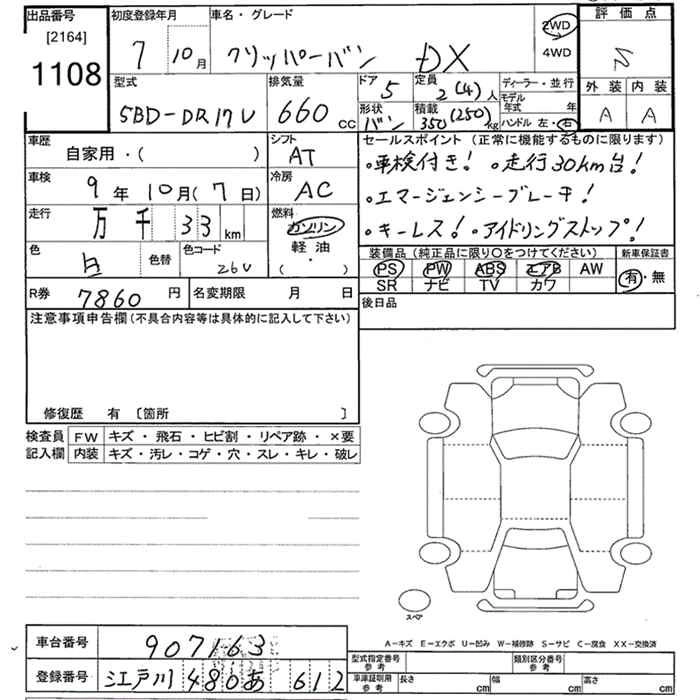 出品番号
[2164]
1108
初度登録年月
7 10月
車名・グレード
クリッパーバン DX
2WD
4WD
評価点
S
外装 内装
A A
型式
5BD-DR17V
排気量
660 cc
ドア
5
定員
2(4)人
形状
バン
積載
350(250)kg
ディーラー・並行
モデル年式 年
ハンドル 左・右
車歴
自家用・( )
シフト
AT
車検
9年10月(7日)
冷房
AC
走行
万 千 33 km
燃料
ガソリン
軽油
( )
色
白
色替
色コード
26U
R券
7860 円
名変期限 月 日
セールスポイント (正常に機能するものに限ります)
・車検付き! ・走行30km台!
・エマージェンシーブレーキ!
・キーレス! ・アイドリングストップ!
装備品 (純正品に限り〇をつけてください)
PS PW ABS エアB AW
SR ナビ TV カワ
新車保証書
有・無
後日品
注意事項申告欄 (不具合内容等は具体的に記入して下さい)
修復歴 有 〔箇所 〕
検査員記入欄
FW キズ・飛石・ヒビ割・リペア跡・×要
内装 キズ・汚レ・コゲ・穴・スレ・キレ・破レ
スペア
A-キズ E-エクボ U-凹み W-補修跡 S-サビ C-腐食 XX-交換済
車台番号
907163
登録番号
江戸川 480 あ 612
型式指定番号 参考
類別区分番号 参考
車庫証明用 参考
長さ cm 幅 cm 高さ cm